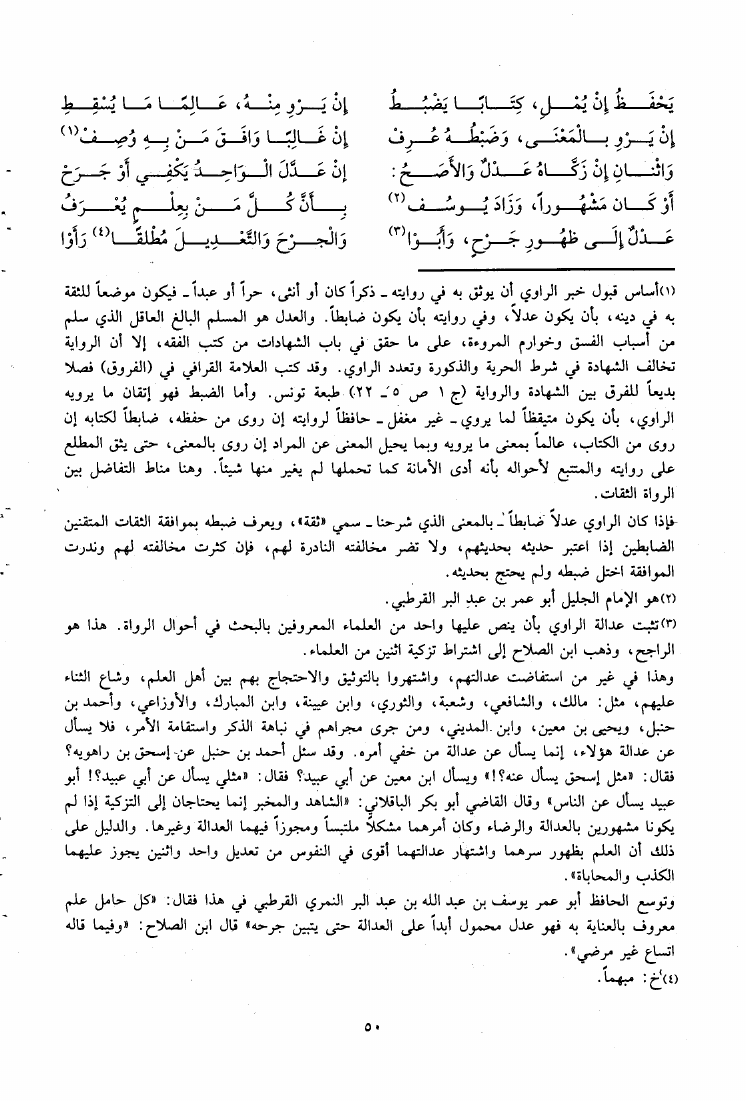 يَحْفَـــظُ إِنْ يُمْـــلِ، كِتَـــابًـــا يَضْبُـــطُ إِنْ يَـــرْوِ مِنْـــهُ، عَـــالِمًـــا مَـــا يُسْقِـــطِ
إِنْ يَـــرْوِ بِـــالْمَعْنَـــى، وَضَبْطُـــهُ عُـــرِفْ إِنْ غَـــالِبًـــا وَافَـــقَ مَـــنْ بِـــهِ وُصِـــفْ(١)
وَاثْنَـــانِ إِنْ زَكَّـــاهُ عَـــدْلٌ وَالأَصَـــحُّ : إِنْ عَـــدَّلَ الْـــوَاحِـــدُ يَكْفِـــي أَوْ جَـــرَحْ
أَوْ كَـــانَ مَشْهُـــوراً، وَزَادَ يُـــوسُـــفُ(٢) بِـــأَنَّ كُـــلَّ مَـــنْ بِعِلْـــمٍ يُعْـــرَفُ
عَـــدْلٌ إِلَـــى ظُهُـــورِ جَـــرْحٍ، وَأَبَـــوْا(٣) وَالْجَـــرْحَ وَالتَّعْـــدِيـــلَ مُطْلَقًـــا(٤) رَأَوْا
(١)أساس قبول خبر الراوي أن يوثق به في روايته ـ ذكراً كان أو أنثى، حراً أو عبداً ـ فيكون موضعاً للثقة
به في دينه، بأن يكون عدلاً، وفي روايته بأن يكون ضابطاً. والعدل هو المسلم البالغ العاقل الذي سلم
من أسباب الفسق وخوارم المروءة، على ما حقق في باب الشهادات من كتب الفقه، إلا أن الرواية
تخالف الشهادة في شرط الحرية والذكورة وتعدد الراوي. وقد كتب العلامة القرافي في (الفروق) فصلا
بديعاً للفرق بين الشهادة والرواية (ج ١ ص ٥ ـ ٢٢) طبعة تونس. وأما الضبط فهو إتقان ما يرويه
الراوي، بأن يكون متيقظاً لما يروي ـ غير مغفل ـ حافظاً لروايته إن روى من حفظه، ضابطاً لكتابه إن
روى من الكتاب، عالماً بمعنى ما يرويه وبما يحيل المعنى عن المراد إن روى بالمعنى، حتى يثق المطلع
على روايته والمتتبع لأحواله بأنه أدى الأمانة كما تحملها لم يغير منها شيئاً. وهنا مناط التفاضل بين
الرواة الثقات.
فإذا كان الراوي عدلاً ضابطاً ـ بالمعنى الذي شرحنا ـ سمي «ثقة»، ويعرف ضبطه بموافقة الثقات المتقنين
الضابطين إذا اعتبر حديثه بحديثهم، ولا تضر مخالفته النادرة لهم، فإن كثرت مخالفته لهم وندرت
الموافقة اختل ضبطه ولم يحتج بحديثه.
(٢)هو الإمام الجليل أبو عمر بن عبد البر القرطبي.
(٣)تثبت عدالة الراوي بأن ينص عليها واحد من العلماء المعروفين بالبحث في أحوال الرواة. هذا هو
الراجح، وذهب ابن الصلاح إلى اشتراط تزكية اثنين من العلماء.
وهذا في غير من استفاضت عدالتهم، واشتهروا بالتوثيق والاحتجاج بهم بين أهل العلم، وشاع الثناء
عليهم، مثل: مالك، والشافعي، وشعبة، والثوري، وابن عيينة، وابن المبارك، والأوزاعي، وأحمد بن
حنبل، ويحيى بن معين، وابن المديني، ومن جرى مجراهم في نباهة الذكر واستقامة الأمر، فلا يسأل
عن عدالة هؤلاء، إنما يسأل عن عدالة من خفي أمره. وقد سئل أحمد بن حنبل عن إسحق بن راهويه؟
فقال: «مثل إسحق يسأل عنه؟!» ويسأل ابن معين عن أبي عبيد؟ فقال: «مثلي يسأل عن أبي عبيد؟! أبو
عبيد يسأل عن الناس» وقال القاضي أبو بكر الباقلاني: «الشاهد والمخبر إنما يحتاجان إلى التزكية إذا لم
يكونا مشهورين بالعدالة والرضاء وكان أمرهما مشكلاً ملتبساً ومجوزاً فيهما العدالة وغيرها. والدليل على
ذلك أن العلم بظهور سرهما واشتهار عدالتهما أقوى في النفوس من تعديل واحد واثنين يجوز عليهما
الكذب والمحاباة».
وتوسع الحافظ أبو عمر يوسف بن عبد الله بن عبد البر النمري القرطبي في هذا فقال: «كل حامل علم
معروف بالعناية به فهو عدل محمول أبداً على العدالة حتى يتبين جرحه» قال ابن الصلاح: «وفيما قاله
اتساع غير مرضي».
(٤)خ: مبهماً.
٥٠